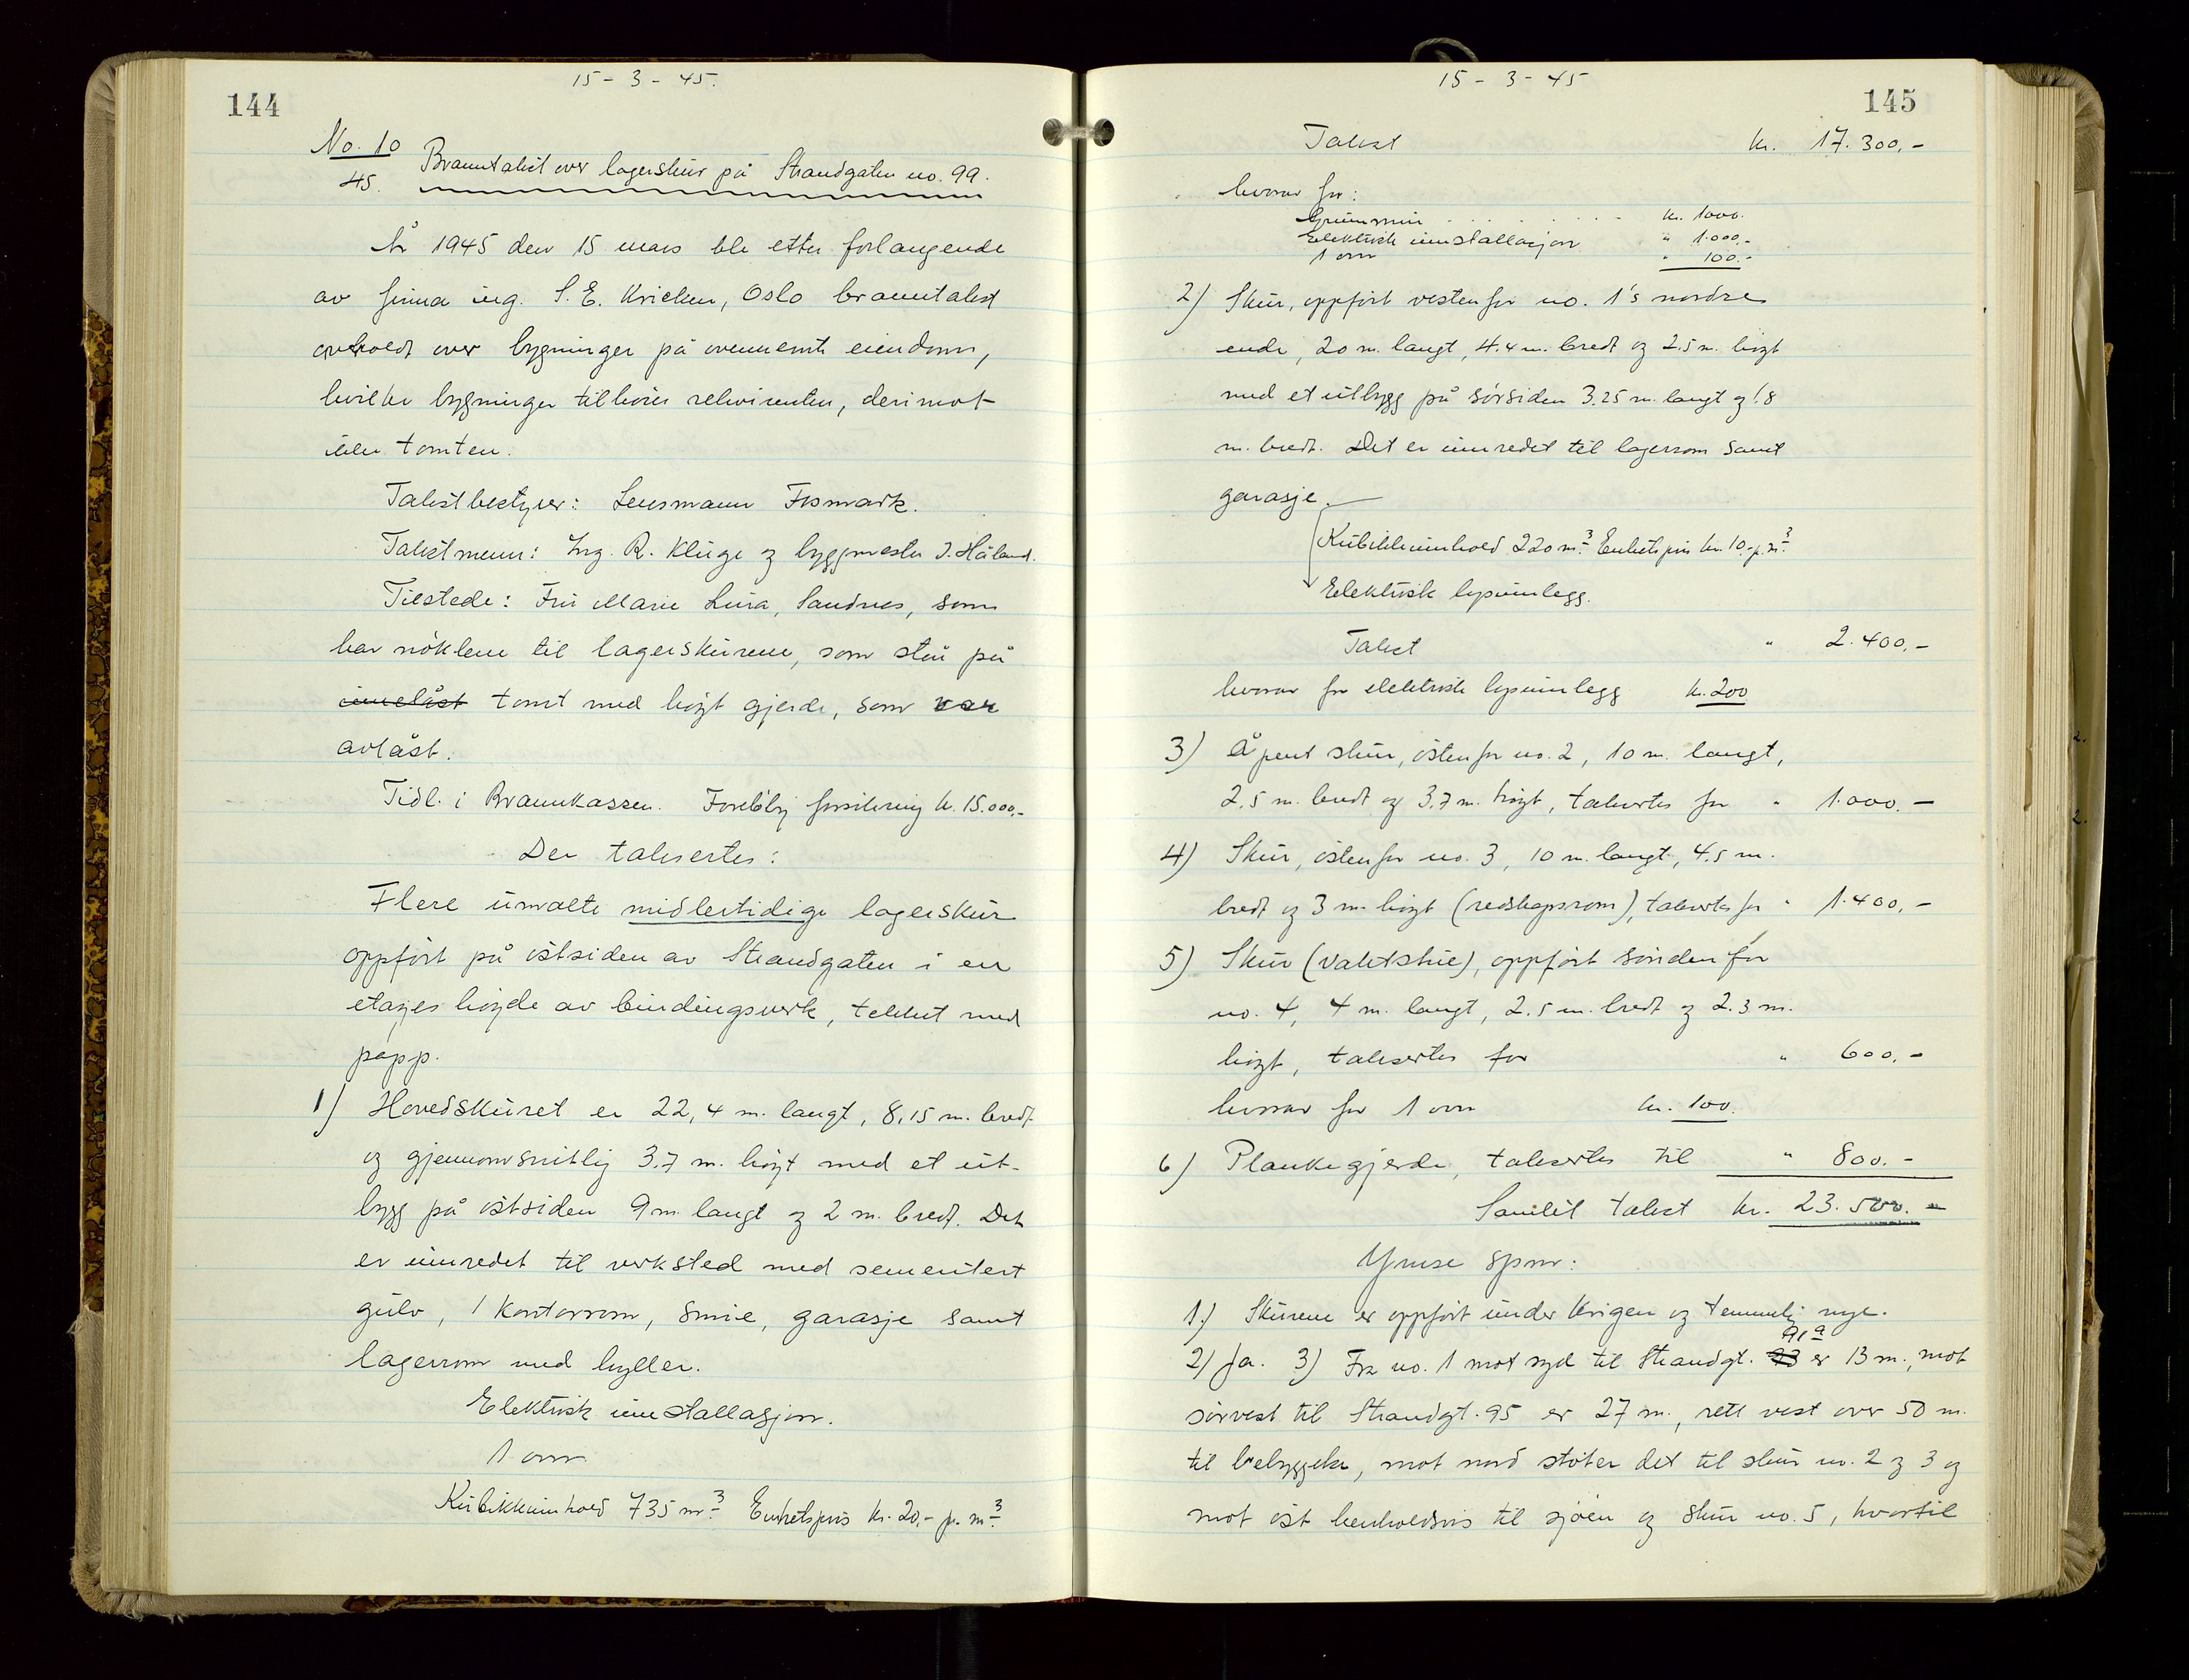 144
15 - 3 - 45.
No. 10
45.
Branntakst over lagerskur på Strandgaten no. 99.
År 1945 den 15 mars ble etter forlangende
av firma ing. S. E. Oslo branntakst
avholdt over bygninger på ovennevnte eiendom,
hvilke bygninger tilhører rekvirenten, derimot
ikke tomten.
Takstbestyrer: Lensmann
Takstmenn: Ing. R. Kluge og byggmester J. Håland.
Tilstede: Fru Marie Lura, Sandnes, som
har nøklene til lagerskurene, som står på
innelåst tomt med høgt gjerde, som var
avlåst.
Tidl. i Brannkassen. Foreløbig forsikring kr. 15.000,-
Der taksertes:
Flere umalte midlertidige lagerskur
oppført på østsiden av Strandgaten i en
etasjes høyde av bindingsverk, tekket med
papp.
1) Hovedskuret er 22,4 m. langt, 8,15 m. bredt
og gjennomsnitlig 3.7 m. høgt med et ut-
bygg på østsiden 9 m. langt og 2 m. bredt. Det
er innredet til verksted med sementert
gulv, 1 kontorrom, smie, garasje samt
lagerrom med hyller.
Elektrisk installasjon.
1 ovn
Kubikkinnhold 735 m³. Enhetspris kr. 20,- p. m³.
15 - 3 - 45
145
Takst kr. 17.300,-
hvorav for:
Grunnmur . . . . . . . kr. 1000.
Elektrisk innstallasjon " 1.000,-
1 ovn " 100.-
2) Skur, oppført vestenfor no. 1's nordre
ende, 20 m. langt, 4.4 m. bredt og 2.5 m. høgt
med et utbygg på sørsiden 3.25 m. langt og 1.8
m. bredt. Det er innredet til lagerrom samt
garasje.
Kubikkinnhold 220 m³. Enhetspris kr. 10,- p. m³.
Elektrisk lysinnlegg.
Takst " 2.400,-
hvorav for elektrisk lysinnlegg kr. 200
3) Åpent skur, østenfor no. 2, 10 m. langt,
2,5 m. bredt og 3.7 m. høgt, taksertes for " 1.000.-
4) Skur, østenfor no. 3, 10 m. langt, 4.5 m.
bredt og 3 m. høgt (redskapsrom), taksertes for " 1.400,-
5) Skur (vaktstue), oppført sønden for
no. 4, 4 m. langt, 2.5 m. bredt og 2.3 m.
høgt, taksertes for " 600.-
hvorav for 1 ovn kr. 100.
6) Plankegjerde, taksertes til " 800.-
Samlet takst kr. 23.500.-
Ymse spm:
1.) Skurene er oppført under krigen og temmelig nye.
2) Ja. 3) Fra no. 1 mot syd til Strandgt. 91ª er 13 m., mot
sørvest til Strandgt. 95 er 27 m., rett vest over 50 m.
til bebyggelse, mot nord støter det til skur no. 2 og 3 og
mot øst henholdsvis til sjøen og skur no. 5, hvortil